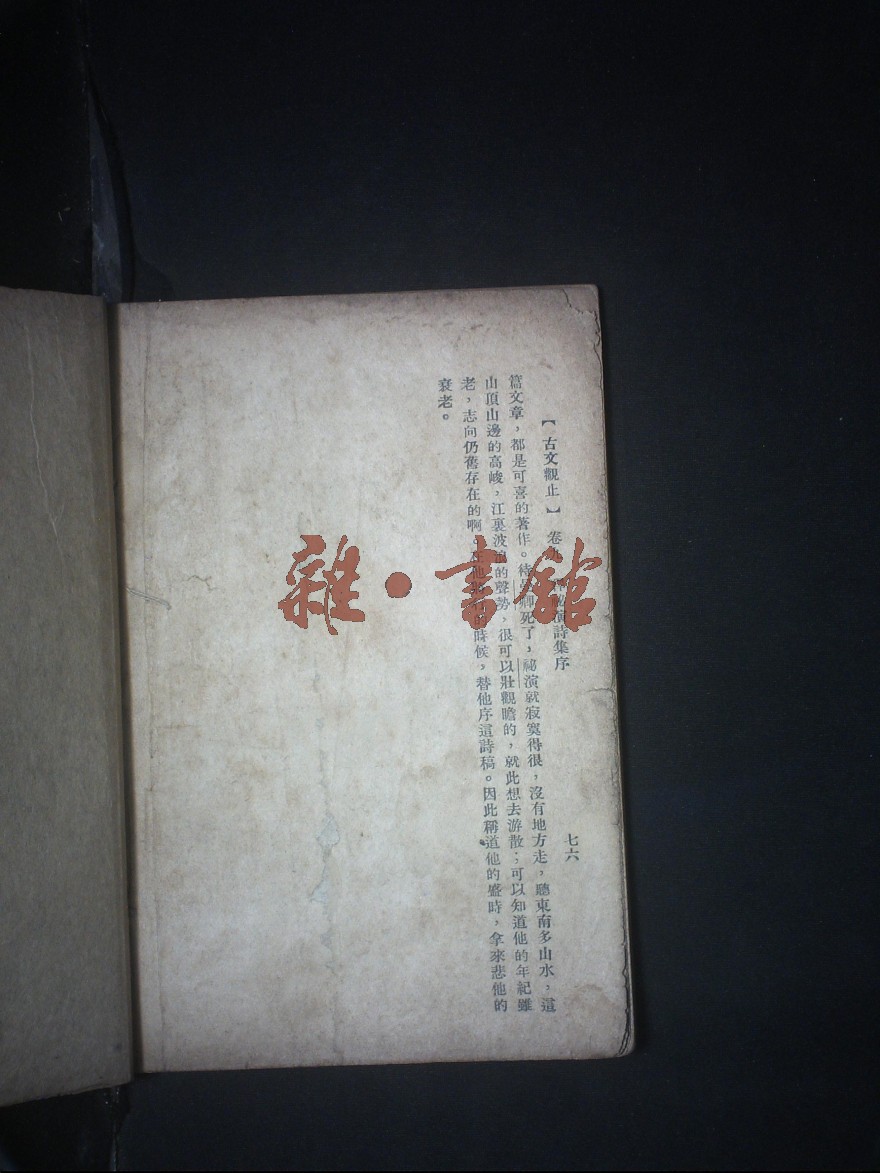 【古文觀止】 卷九 釋祕演詩集序 七六
篇文章，都是可喜的著作。待曼卿死了，祕演就寂寞得很，沒有地方走，聽東南多山水，這
山頂山邊的高峻，江裏波浪的聲勢，很可以壯觀瞻的，就此想去游散；可以知道他的年紀雖
老，志向仍舊存在的啊。在他 的時候，替他序這詩稿。因此稱道他的盛時，拿來悲他的
衰老。
雜·書館